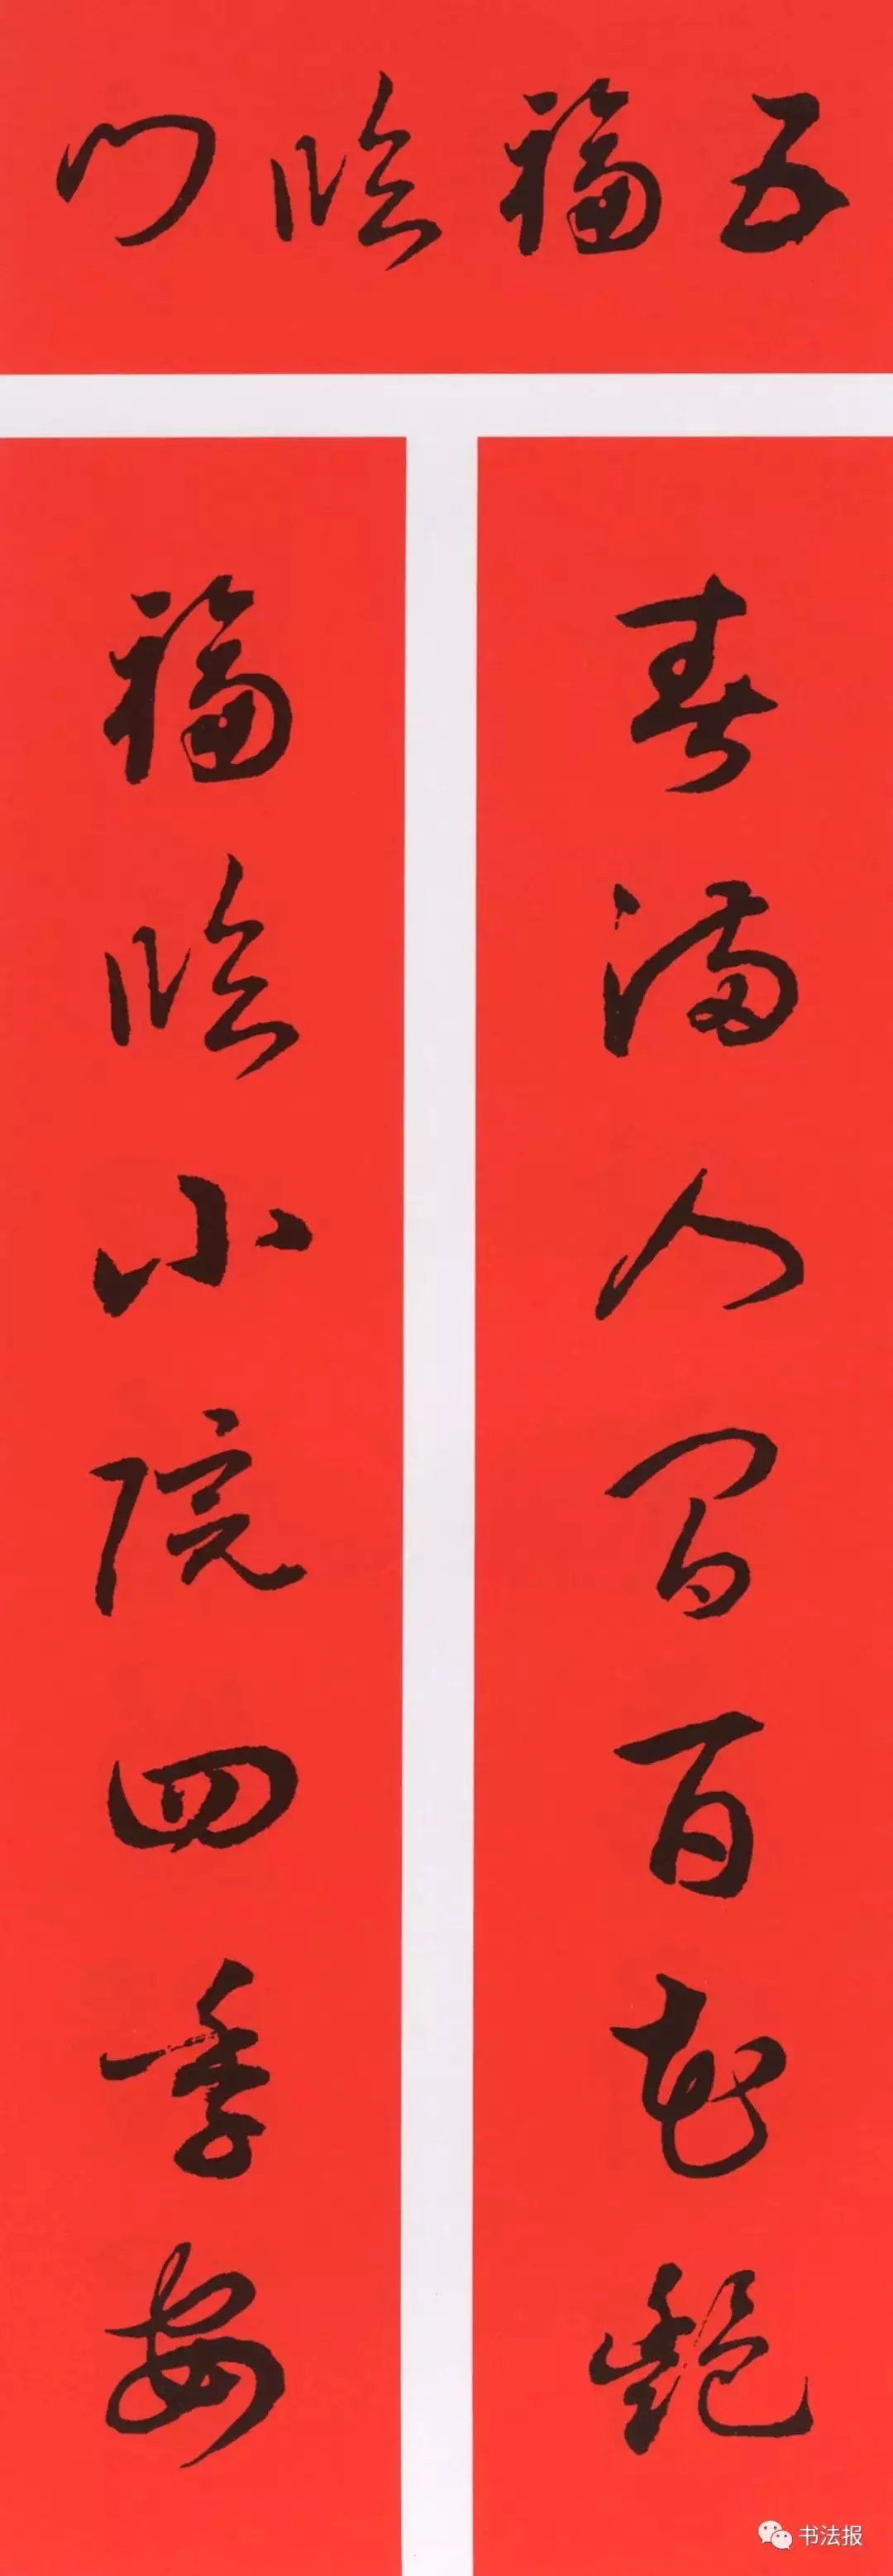 五福临门
春满人间百花艳
福临小院四季安
书法报